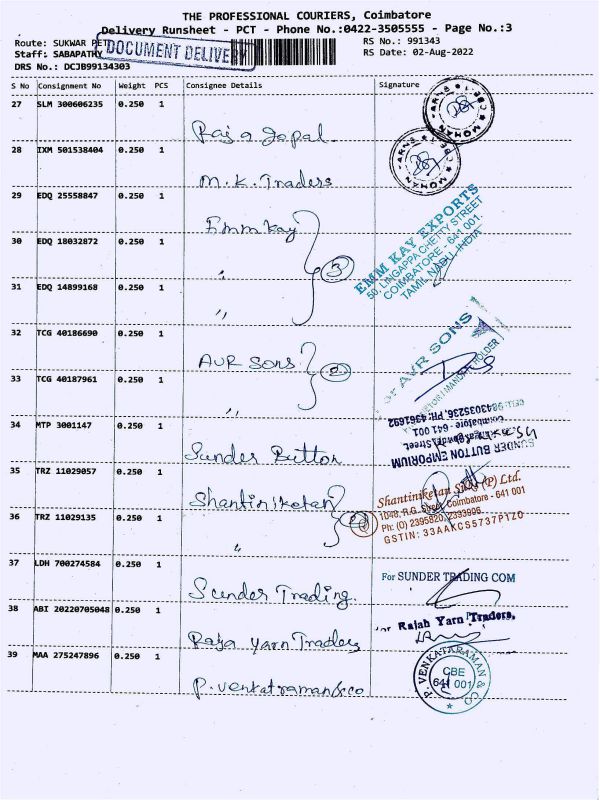 THE PROFESSIONAL COURIERS, Coimbatore
Delivery Runsheet - PCT - Phone No.:0422-3505555 - Page No.:3
Route: SUKWAR PET
RS No.: 991343
DOCUMENT DELIVERY
Staff: SABAPATHY
RS Date: 02-Aug-2022
DRS No.: DCJB99134303
S No Consignment No Weight PCS Consignee Details Signature
27 SLM 300606235 0.250 1
Rajagopal
28 IXM 501538404 0.250 1
M.K. Traders
29 EDQ 25558847 0.250 1
Emm Kay
30 EDQ 18032872 0.250 1
"
3
EMM KAY EXPORTS
50, LINGAPPA CHETTY STREET
COIMBATORE - 641 001.
TAMIL NADU, INDIA
31 EDQ 14899168 0.250 1
"
32 TCG 40186690 0.250 1
AVR Sons
2
AVR SONS
33 TCG 40187961 0.250 1
"
34 MTP 3001147 0.250 1
Sunder Button
SUNDER BUTTON EMPORIUM
Coimbatore - 641 001
9843035236, PH: 4361692
35 TRZ 11029057 0.250 1
Shantiniketan
2
Shantiniketan (P) Ltd.
1048, R.G. Street, Coimbatore - 641 001
Ph: (O) 2395820, 2333996
GSTIN: 33AAKCS5737P1Z0
36 TRZ 11029135 0.250 1
"
37 LDH 700274584 0.250 1
Sunder Trading.
For SUNDER TRADING COM
38 ABI 20220705048 0.250 1
Raja Yarn Traders
For Rajah Yarn Traders,
39 MAA 275247896 0.250 1
P. Venkatraman & co
P. VENKATARAMAN & CO
CBE
641 001